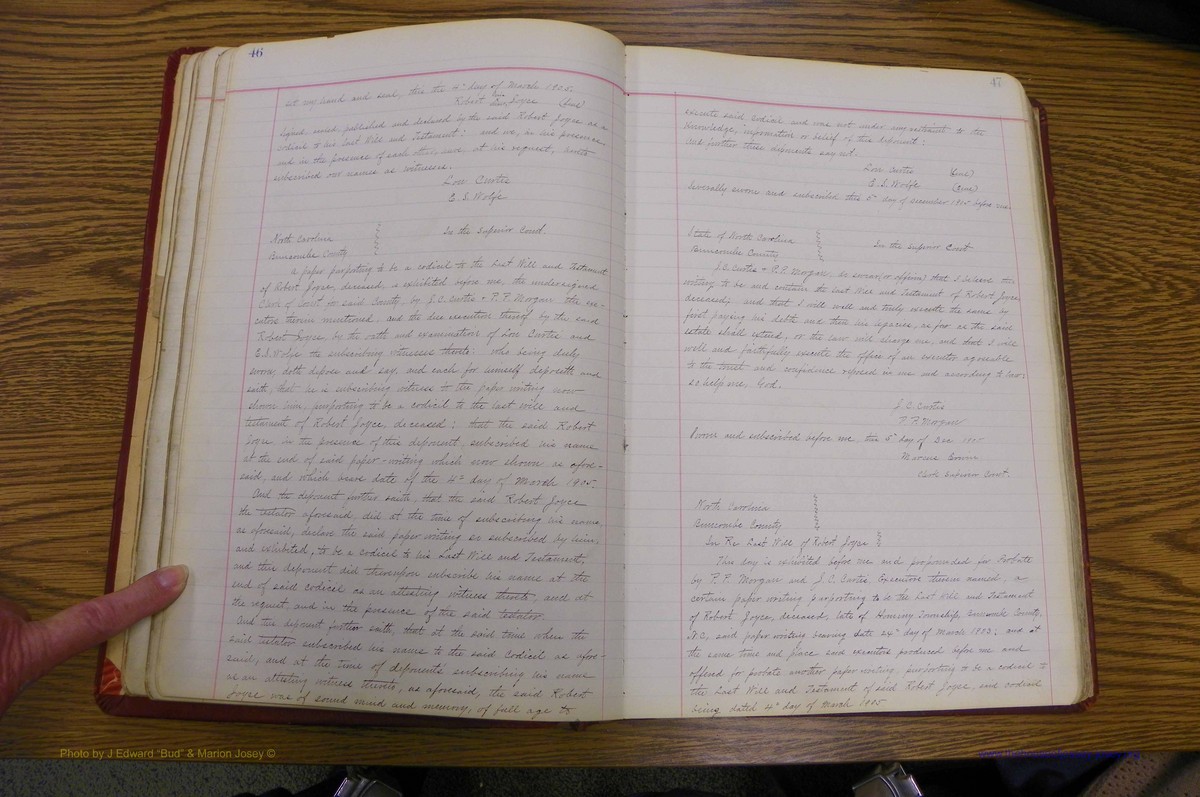 46
set my hand and seal, this the 4th day of March 1905.
his
Robert Joyce (seal)
Signed, sealed, published and declared by the said Robert Joyce as a
codicil to his Last Will and Testament: and we, in his presence,
and in the presence of each other, and, at his request, have
subscribed our names as witnesses.
Lon Curtis
E. S. Wolfe
North Carolina
Buncombe County
In the Superior Court.
A paper purporting to be a codicil to the Last Will and Testament
of Robert Joyce, deceased, is exhibited before me, the undersigned
Clerk of Court for said County, by J. C. Curtis & P. P. Morgan the exe-
cutors therein mentioned, and the due execution thereof by the said
Robert Joyce, by the oath and examination of Lon Curtis and
E. S. Wolfe the subscribing witnesses thereto: who being duly
sworn, doth depose and say, and each for himself deposeth and
saith, that he is subscribing witness to the paper writing now
shown him, purporting to be a codicil to the last will and
testament of Robert Joyce, deceased: that the said Robert
Joyce in the presence of this deponent, subscribed his name
at the end of said paper-writing which now shown as afore-
said, and which bears date of the 4th day of March 1905.
And the deponent further saith, that the said Robert Joyce
the testator aforesaid, did at the time of subscribing his name
as aforesaid, declare the said paper writing so subscribed by him,
and exhibited, to be a codicil to his Last Will and Testament,
and this deponent did thereupon subscribe his name at the
end of said codicil as an attesting witness thereto, and at
the request, and in the presence of the said testator.
And the deponent further saith, that at the said time when the
said testator subscribed his name to the said codicil as afore-
said, and at the time of deponent's subscribing his name
as an attesting witness thereto, as aforesaid, the said Robert
Joyce was of sound mind and memory, of full age to
47
execute said codicil and was not under any restraint to the
knowledge, information or belief of this deponent:
and further these deponents say not.
Lon Curtis (seal)
E. S. Wolfe (seal)
Severally sworn and subscribed this 5th day of December 1905 before me
State of North Carolina
Buncombe County
In the Superior Court
J. C. Curtis & P. P. Morgan, do swear (or affirm) that I believe this
writing to be and contain the last Will and Testament of Robert Joyce
deceased; and that I will well and truly execute the same by
first paying his debts and then his legacies, as far as the said
estate shall extend, or the law will charge me, and that I will
well and faithfully execute the office of an executor agreeable
to the trust and confidence reposed in me and according to law:
so help me, God.
J. C. Curtis
P. P. Morgan
Sworn and subscribed before me, this 5th day of Dec 1905
Marcus Erwin
Clerk Superior Court.
North Carolina
Buncombe County
In Re Last Will of Robert Joyce
This day is exhibited before me and propounded for Probate
by P. P. Morgan and J. C. Curtis, Executors therein named, a
certain paper writing purporting to be the Last Will and Testament
of Robert Joyce, deceased, late of Hominy Township, Buncombe County,
N.C., said paper writing bearing date 24th day of March 1903; and at
the same time and place said executors produced before me and
offered for probate another paper-writing, purporting to be a codicil to
the Last Will and Testament of said Robert Joyce, said codicil
being dated 4th day of March 1905
Photo by J Edward "Bud" & Marion Josey ©